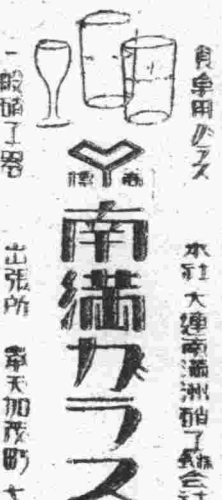 食卓用ガラス
一般硝子器
商標
南満ガラス
本社 大連南満洲硝子株式会
出張所 奉天加茂町